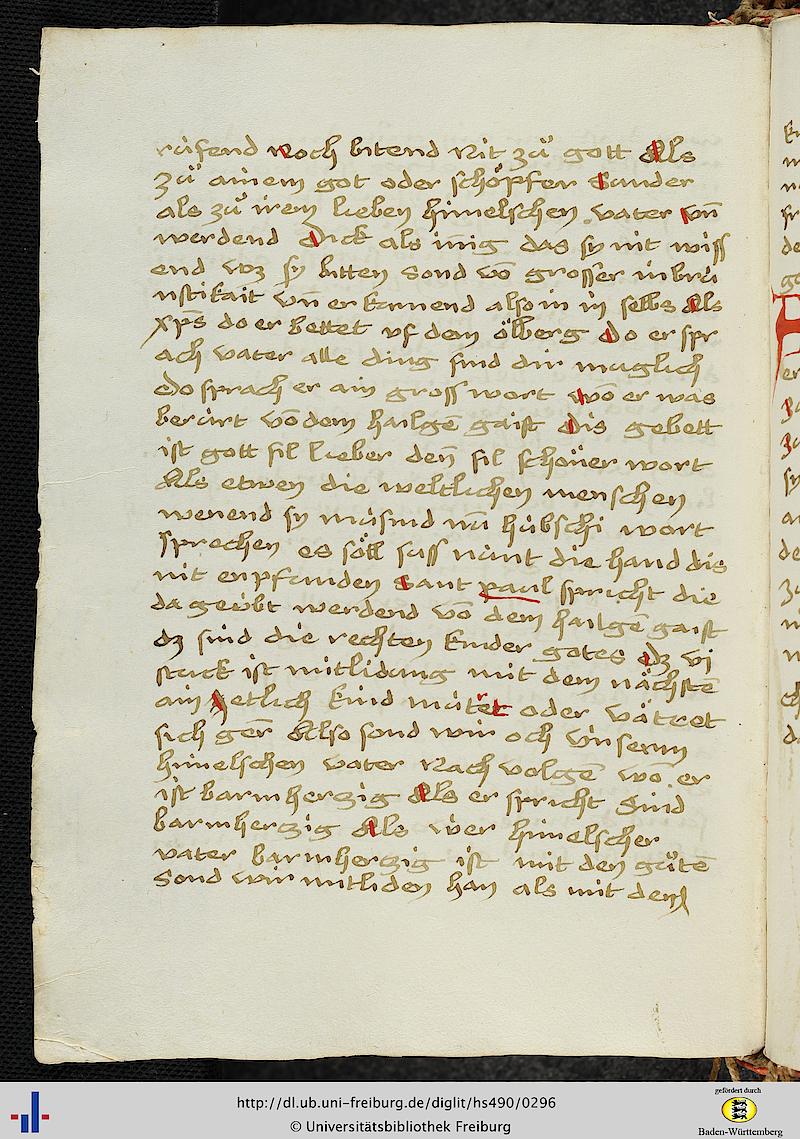 rüfend Noch bitend Nit zů gott Als
zů ainem got oder schöpfer Sunder
als zů irem lieben himelschen vater vn̄
werdend Dick als in̄ig das sy nit wiss
end wz sy bitten sond vō grosser inbrü
nstikait vn̄ er kennend also in in selbs Als
xp̄s do er bettet vf dem ölberg Do er spr
ach vater alle ding sind dir muglich
Do sprach er ain gross wort wō er was
berürt vō dem hailgē gaist Dis gebett
ist gott fil lieber den̄ fil schöner wort
Als etwen die weltlichen menschen
wenend sy müsind nū hübschi wort
sprechen es söll suss nünt die hand dis
nit enpfunden Sant paul spricht die
da geübt werdend vō dem hailgē gaist
dz sind die rechten kinder gotes Dz vj
stuck ist mitlidung mit dem nächstē
ain yetlich kind mütret oder vätret
sich gern̄ Also sond wir och vnserm
himelschen vater Nach volgē wō er
ist barmherczig Als er spricht Sind
barmherczig Als üwer himelscher
vater barmherczig ist mit den gütē
Sond wir mitliden han als mit dem
http://dl.ub.uni-freiburg.de/diglit/hs490/0296
© Universitätsbibliothek Freiburg
gefördert durch
Baden-Württemberg